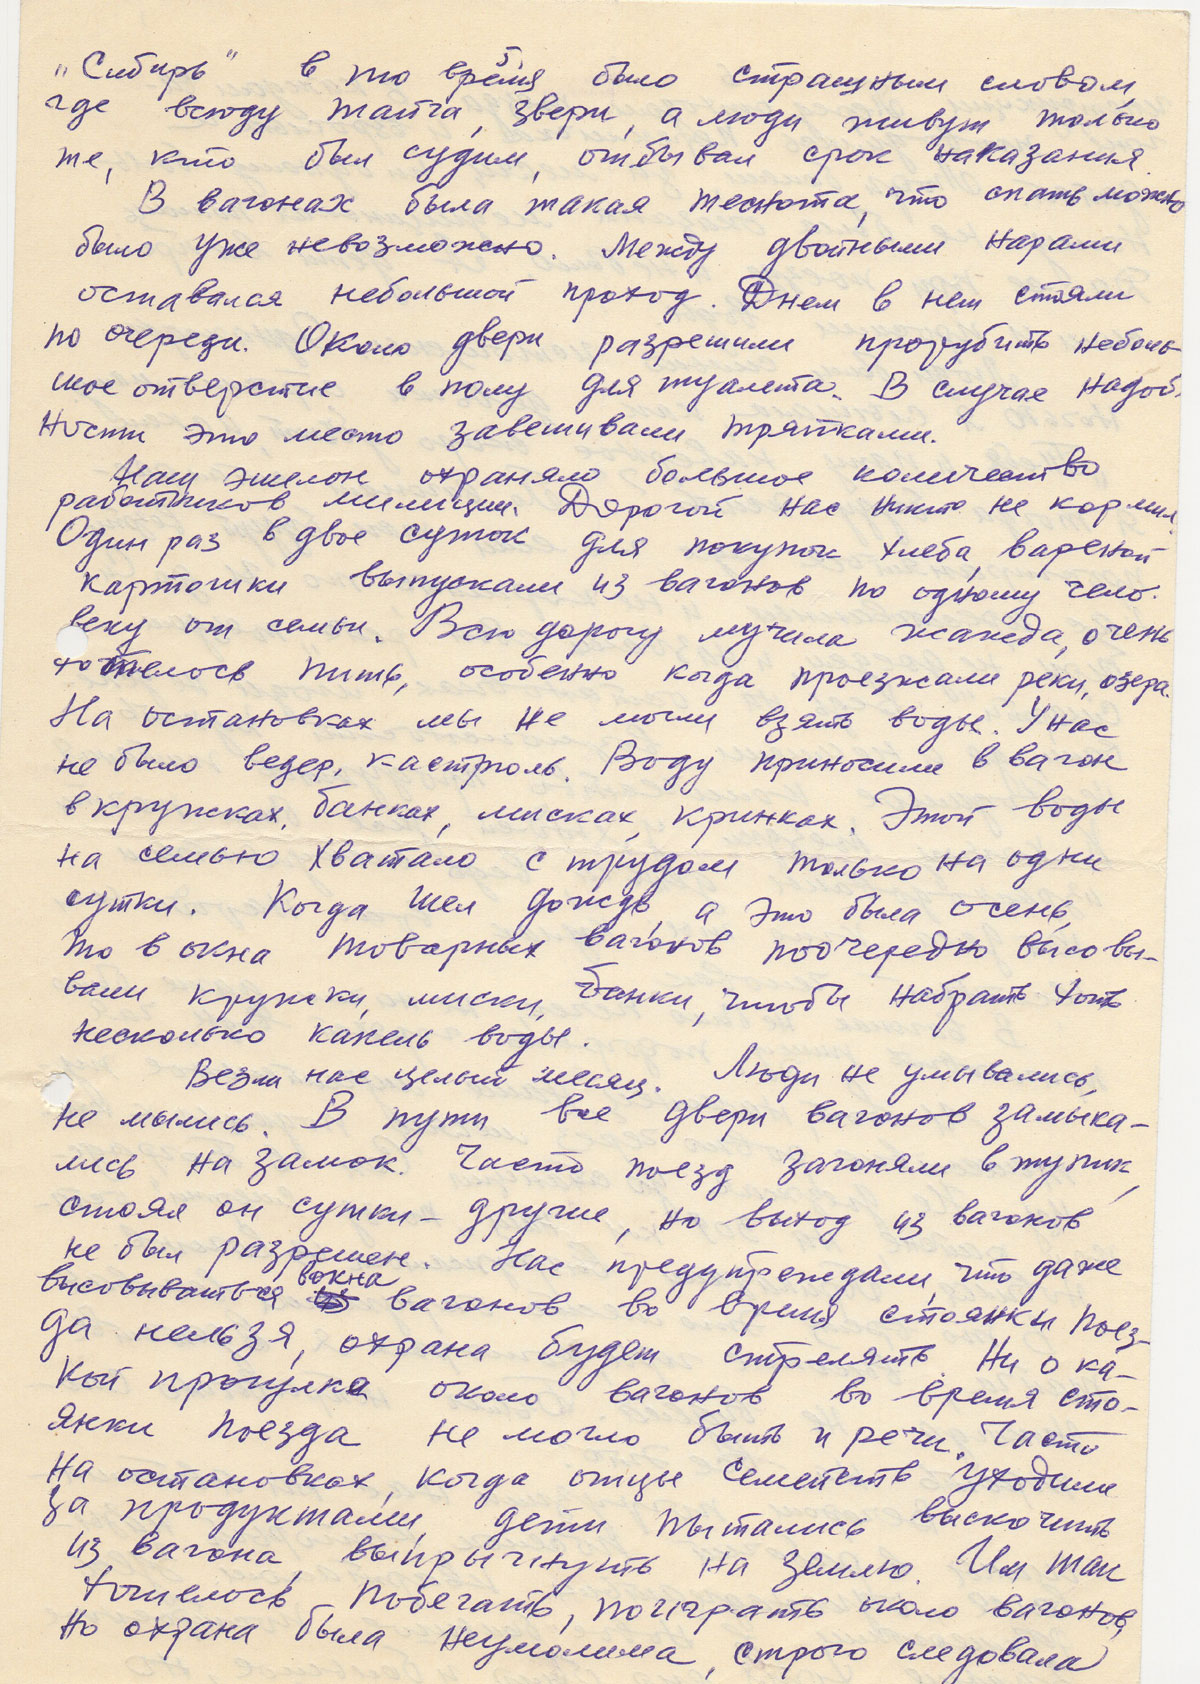 5
„Сибирь" в то время было страшным словом,
где всюду тайга, звери, а люди живут только
те, кто был судим, отбывал срок наказания.
В вагонах была такая теснота, что спать можно
было уже невозможно. Между двойными нарами
оставался небольшой проход. Днем в нем стояли
по очереди. Около двери разрешили прорубить неболь-
шое отверстие в полу для туалета. В случае надоб-
ности это место завешивали тряпками.
Наш эшелон охраняло большое количество
работников милиции. Дорогой нас никто не кормил.
Один раз в двое суток для покупок хлеба, вареной
картошки выпускали из вагонов по одному чело-
веку от семьи. Всю дорогу мучила жажда, очень
хотелось пить, особенно когда проезжали реки, озера.
На остановках мы не могли взять воды. У нас
не было ведер, кастрюль. Воду приносили в вагон
в кружках, банках, мисках, кринках. Этой воды
на семью хватало с трудом только на одни
сутки. Когда шел дождь, а это была осень,
то в окна товарных вагонов поочередно высовы-
вали кружки, миски, банки, чтобы набрать хоть
несколько капель воды.
Везли нас целый месяц. Люди не умывались,
не мылись. В пути все двери вагонов замыка-
лись на замок. Часто поезд загоняли в тупик,
стоял он сутки – другие, но выход из вагонов
не был разрешен. Нас предупреждали, что даже
высовываться в окна вагонов во время стоянки поез-
да нельзя, охрана будет стрелять. Ни о ка-
кой прогулке около вагонов во время сто-
янки поезда не могло быть и речи. Часто
на остановках, когда отцы семейств уходили
за продуктами, дети пытались выскочить
из вагона, выпрыгнуть на землю. Им так
хотелось побегать, поиграть около вагонов,
но охрана была неумолима, строго следовала